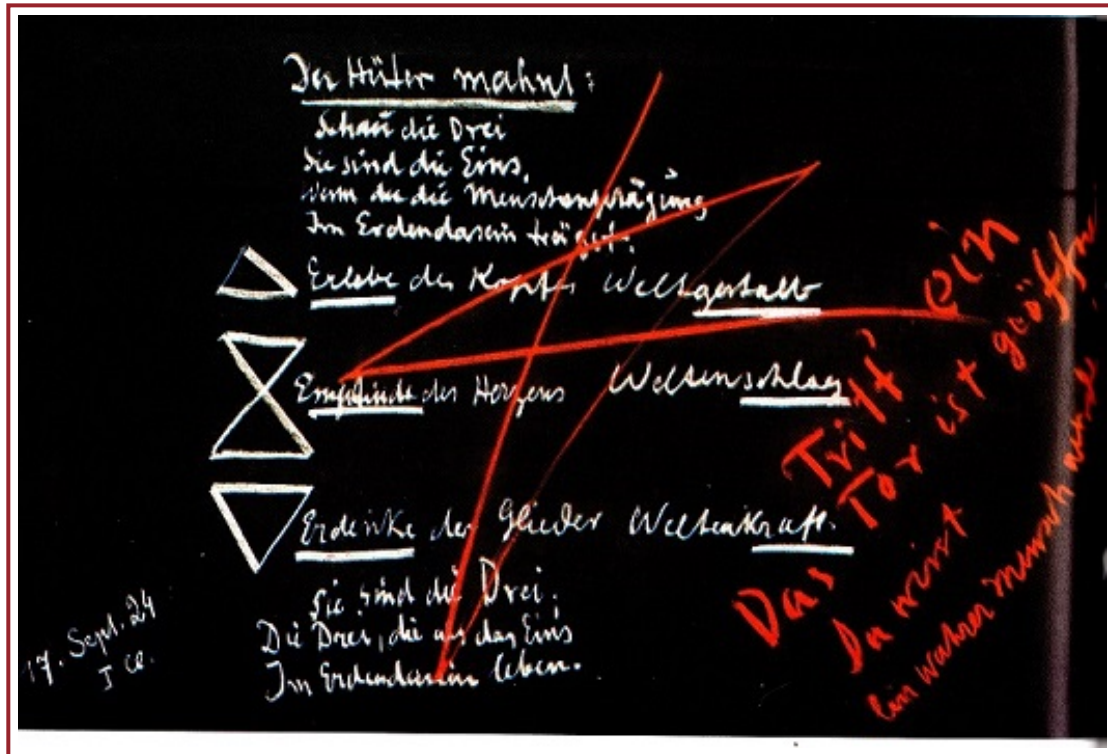 Der Hüter mahnt:
Schau die Drei
Sie sind die Eins,
Wenn du die Menschenprägung
Im Erdendasein trägst.
Erlebe des Kopfes Weltgestalt
Empfinde des Herzens Weltenschlag
Erdenke der Glieder Weltenkraft.
Sie sind die Drei,
Die Drei, die als das Eins
Im Erdendasein leben.
17. Sept. 24
I
Tritt ein
Das Tor ist geöffne
Du wirst
Ein wahrer Mensch